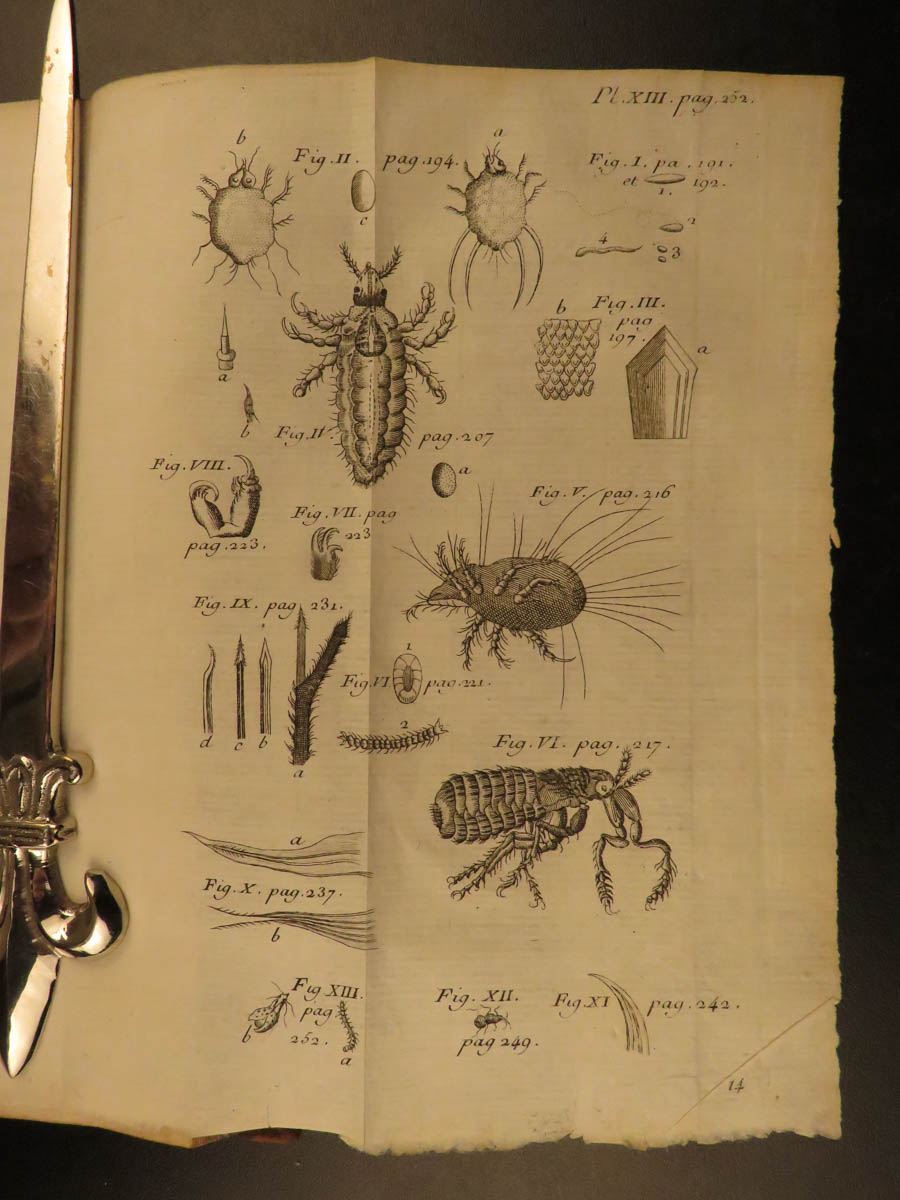 Pl. XIII. pag. 252.
b
Fig. II. pag. 194.
a
Fig. I. pa. 191.
et 192.
1.
c
2
4
3
b
Fig. III.
pag
197.
a
a
b
Fig. IV. pag. 207
a
Fig. VIII.
pag. 223.
Fig. VII. pag
223
Fig. V. pag. 216
Fig. IX. pag. 231.
1
Fig. VI pag. 221.
d c b
a
2
Fig. VI. pag. 217.
a
Fig. X. pag. 237.
b
Fig. XIII.
pag.
252.
b
a
Fig. XII.
pag 249.
Fig. XI pag. 242.
14